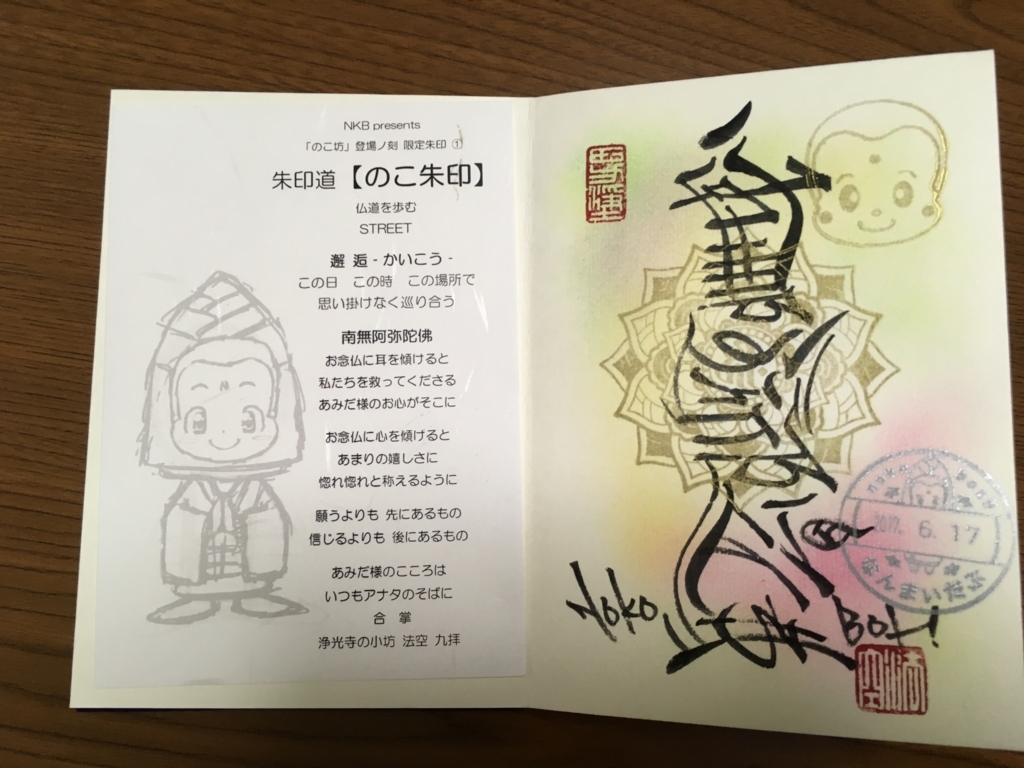 NKB presents
「のこ坊」登場ノ刻 限定朱印 ①
朱印道【のこ朱印】
仏道を歩む
STREET
邂 逅 - かいこう -
この日 この時 この場所で
思い掛けなく巡り合う
南無阿弥陀佛
お念仏に耳を傾けると
私たちを救ってくださる
あみだ様のお心がそこに
お念仏に心を傾けると
あまりの嬉しさに
惚れ惚れと称えるように
願うよりも 先にあるもの
信じるよりも 後にあるもの
あみだ様のこころは
いつもアナタのそばに
合 掌
浄光寺の小坊 法空 九拝
南無阿弥陀佛
Noko
BOY!
2017. 6. 17
なんまいだぶ
法空